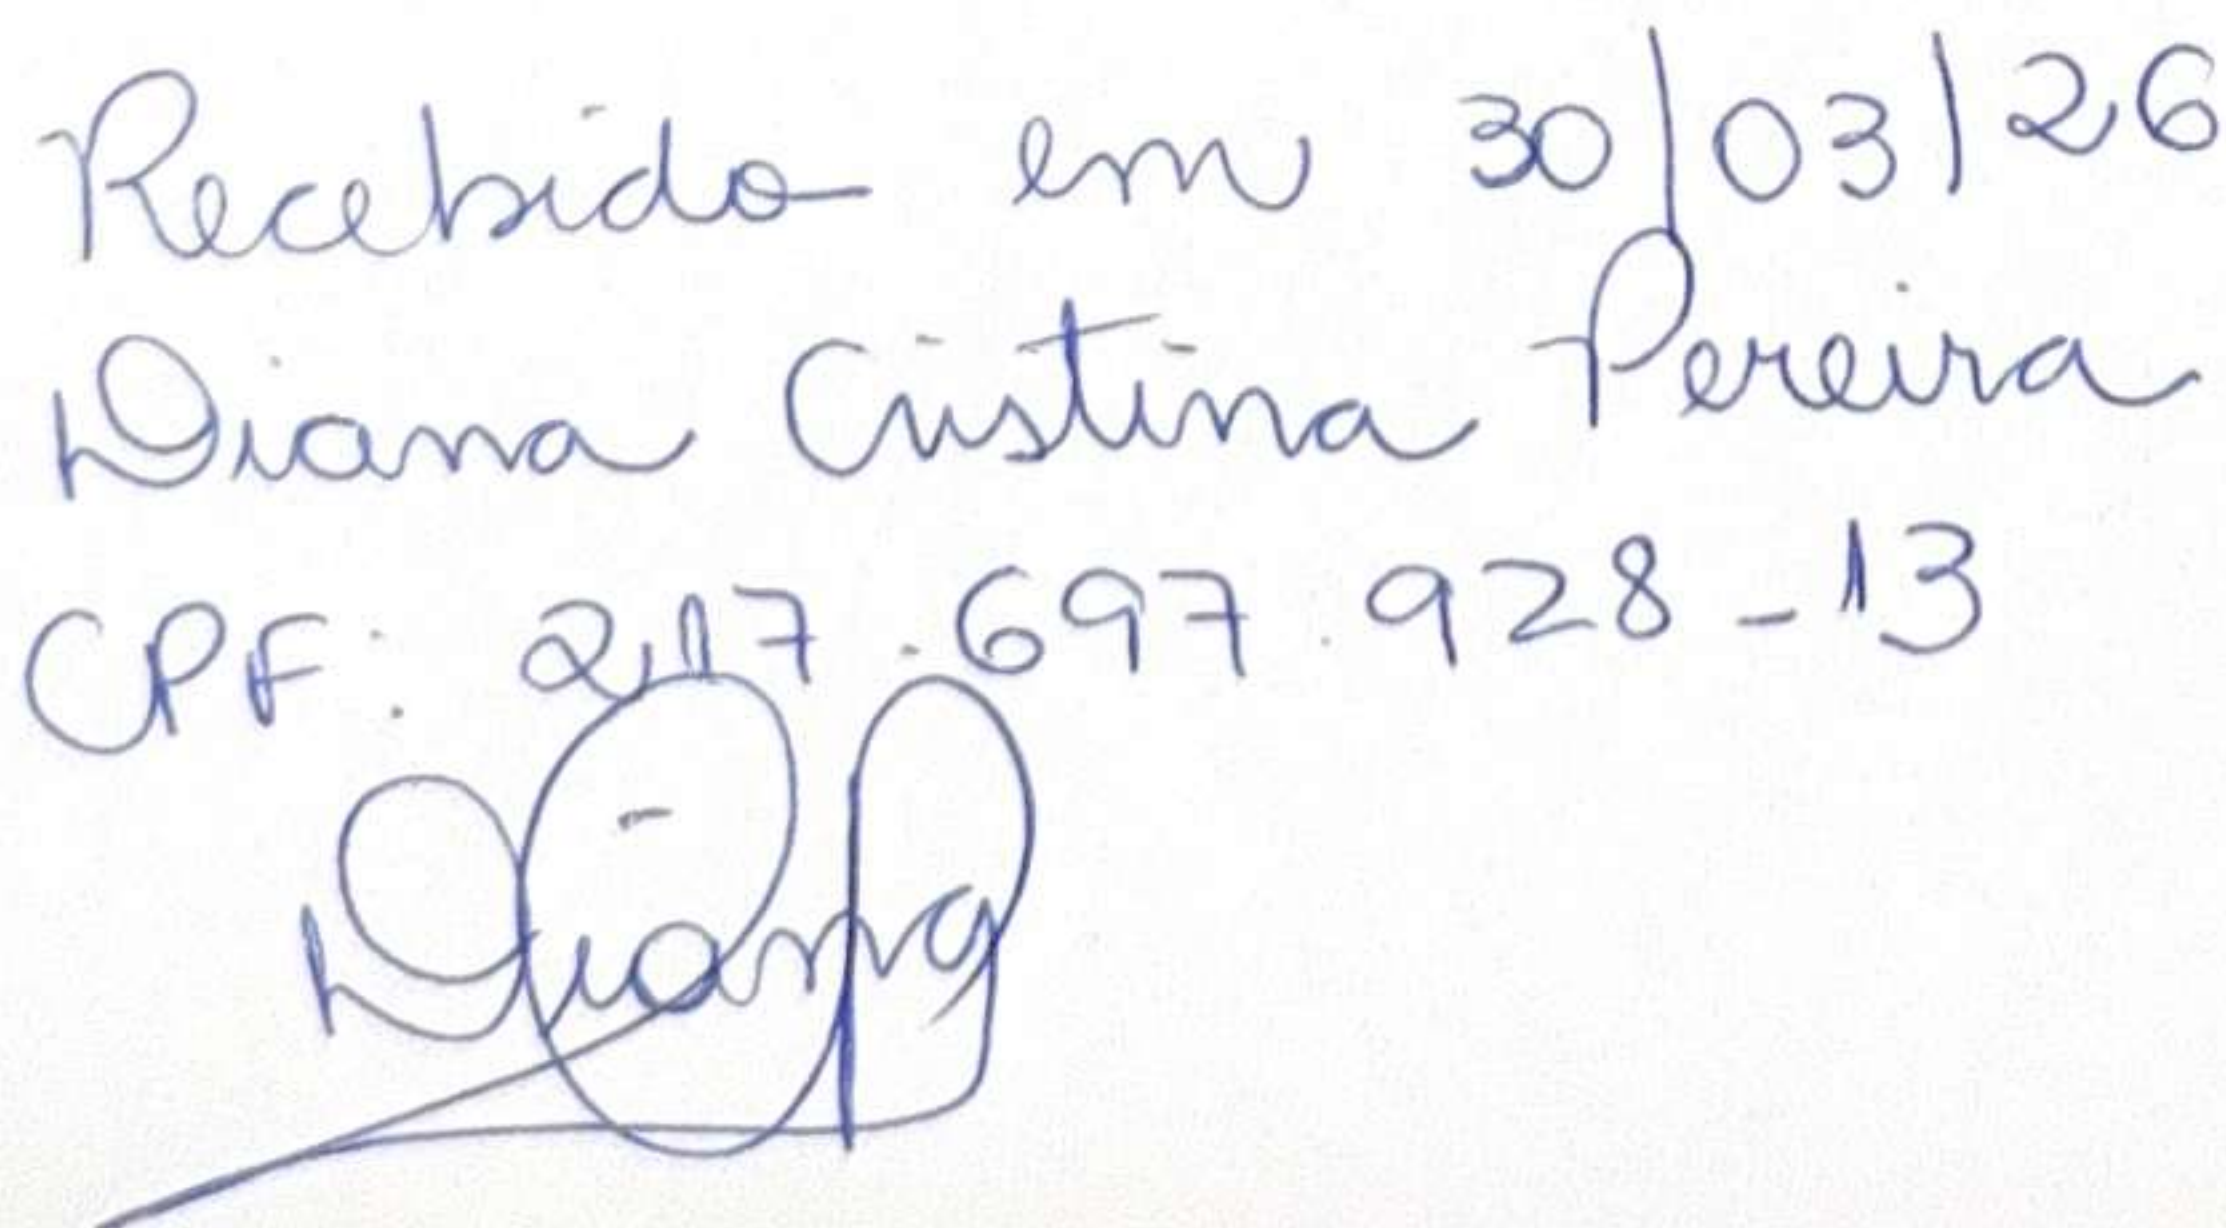 Recebido em 30/03/26
Diana Cristina Pereira
CPF: 217.697.928-13
Diana